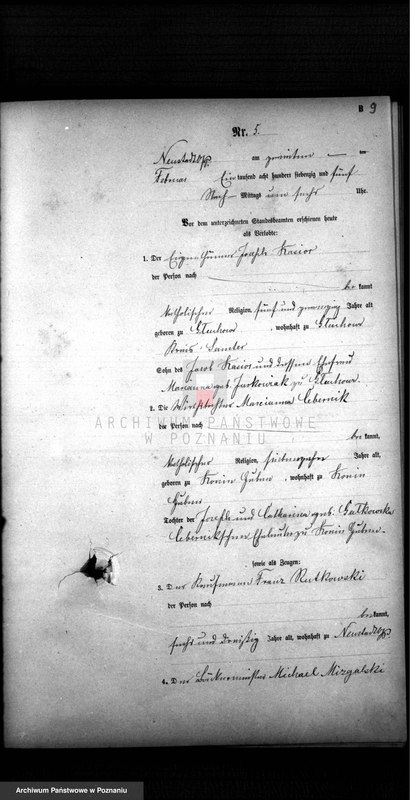 B 9
Nr. 5.
Neustadt am zweiten
Februar Ein tausend acht hundert siebenzig und fünf
Nach Mittags um sechs Uhr.
Vor dem unterzeichneten Standesbeamten erschienen heute
als Verlobte:
1. Der Eigenthümer Joseph Kacior
der Person nach
be kannt
katholischer Religion, fünf und zwanzig Jahre alt
geboren zu Gluchow, wohnhaft zu Gluchow
Kreis Samter
Sohn des Jacob Kacior und dessen Ehefrau
Marianna geb. Jurkowiak zu Gluchow
2. Die Wirthstochter Marianna Cebernik
die Person nach
ARCHIWUM PAŃSTWOWE
W POZNANIU
be kannt,
katholischer Religion, siebenzehn Jahre alt,
geboren zu Konin, wohnhaft zu Konin
Tochter der Joseph und Catharina geb. Gutkowska
Cebernikschen Eheleute zu Konin
sowie als Zeugen:
3. Der Kaufmann Franz Rutkowski
der Person nach
be kannt,
sechs und dreißig Jahre alt, wohnhaft zu Neustadt
4. Der Bäckermeister Michael Mizgalski
Archiwum Państwowe w Poznaniu